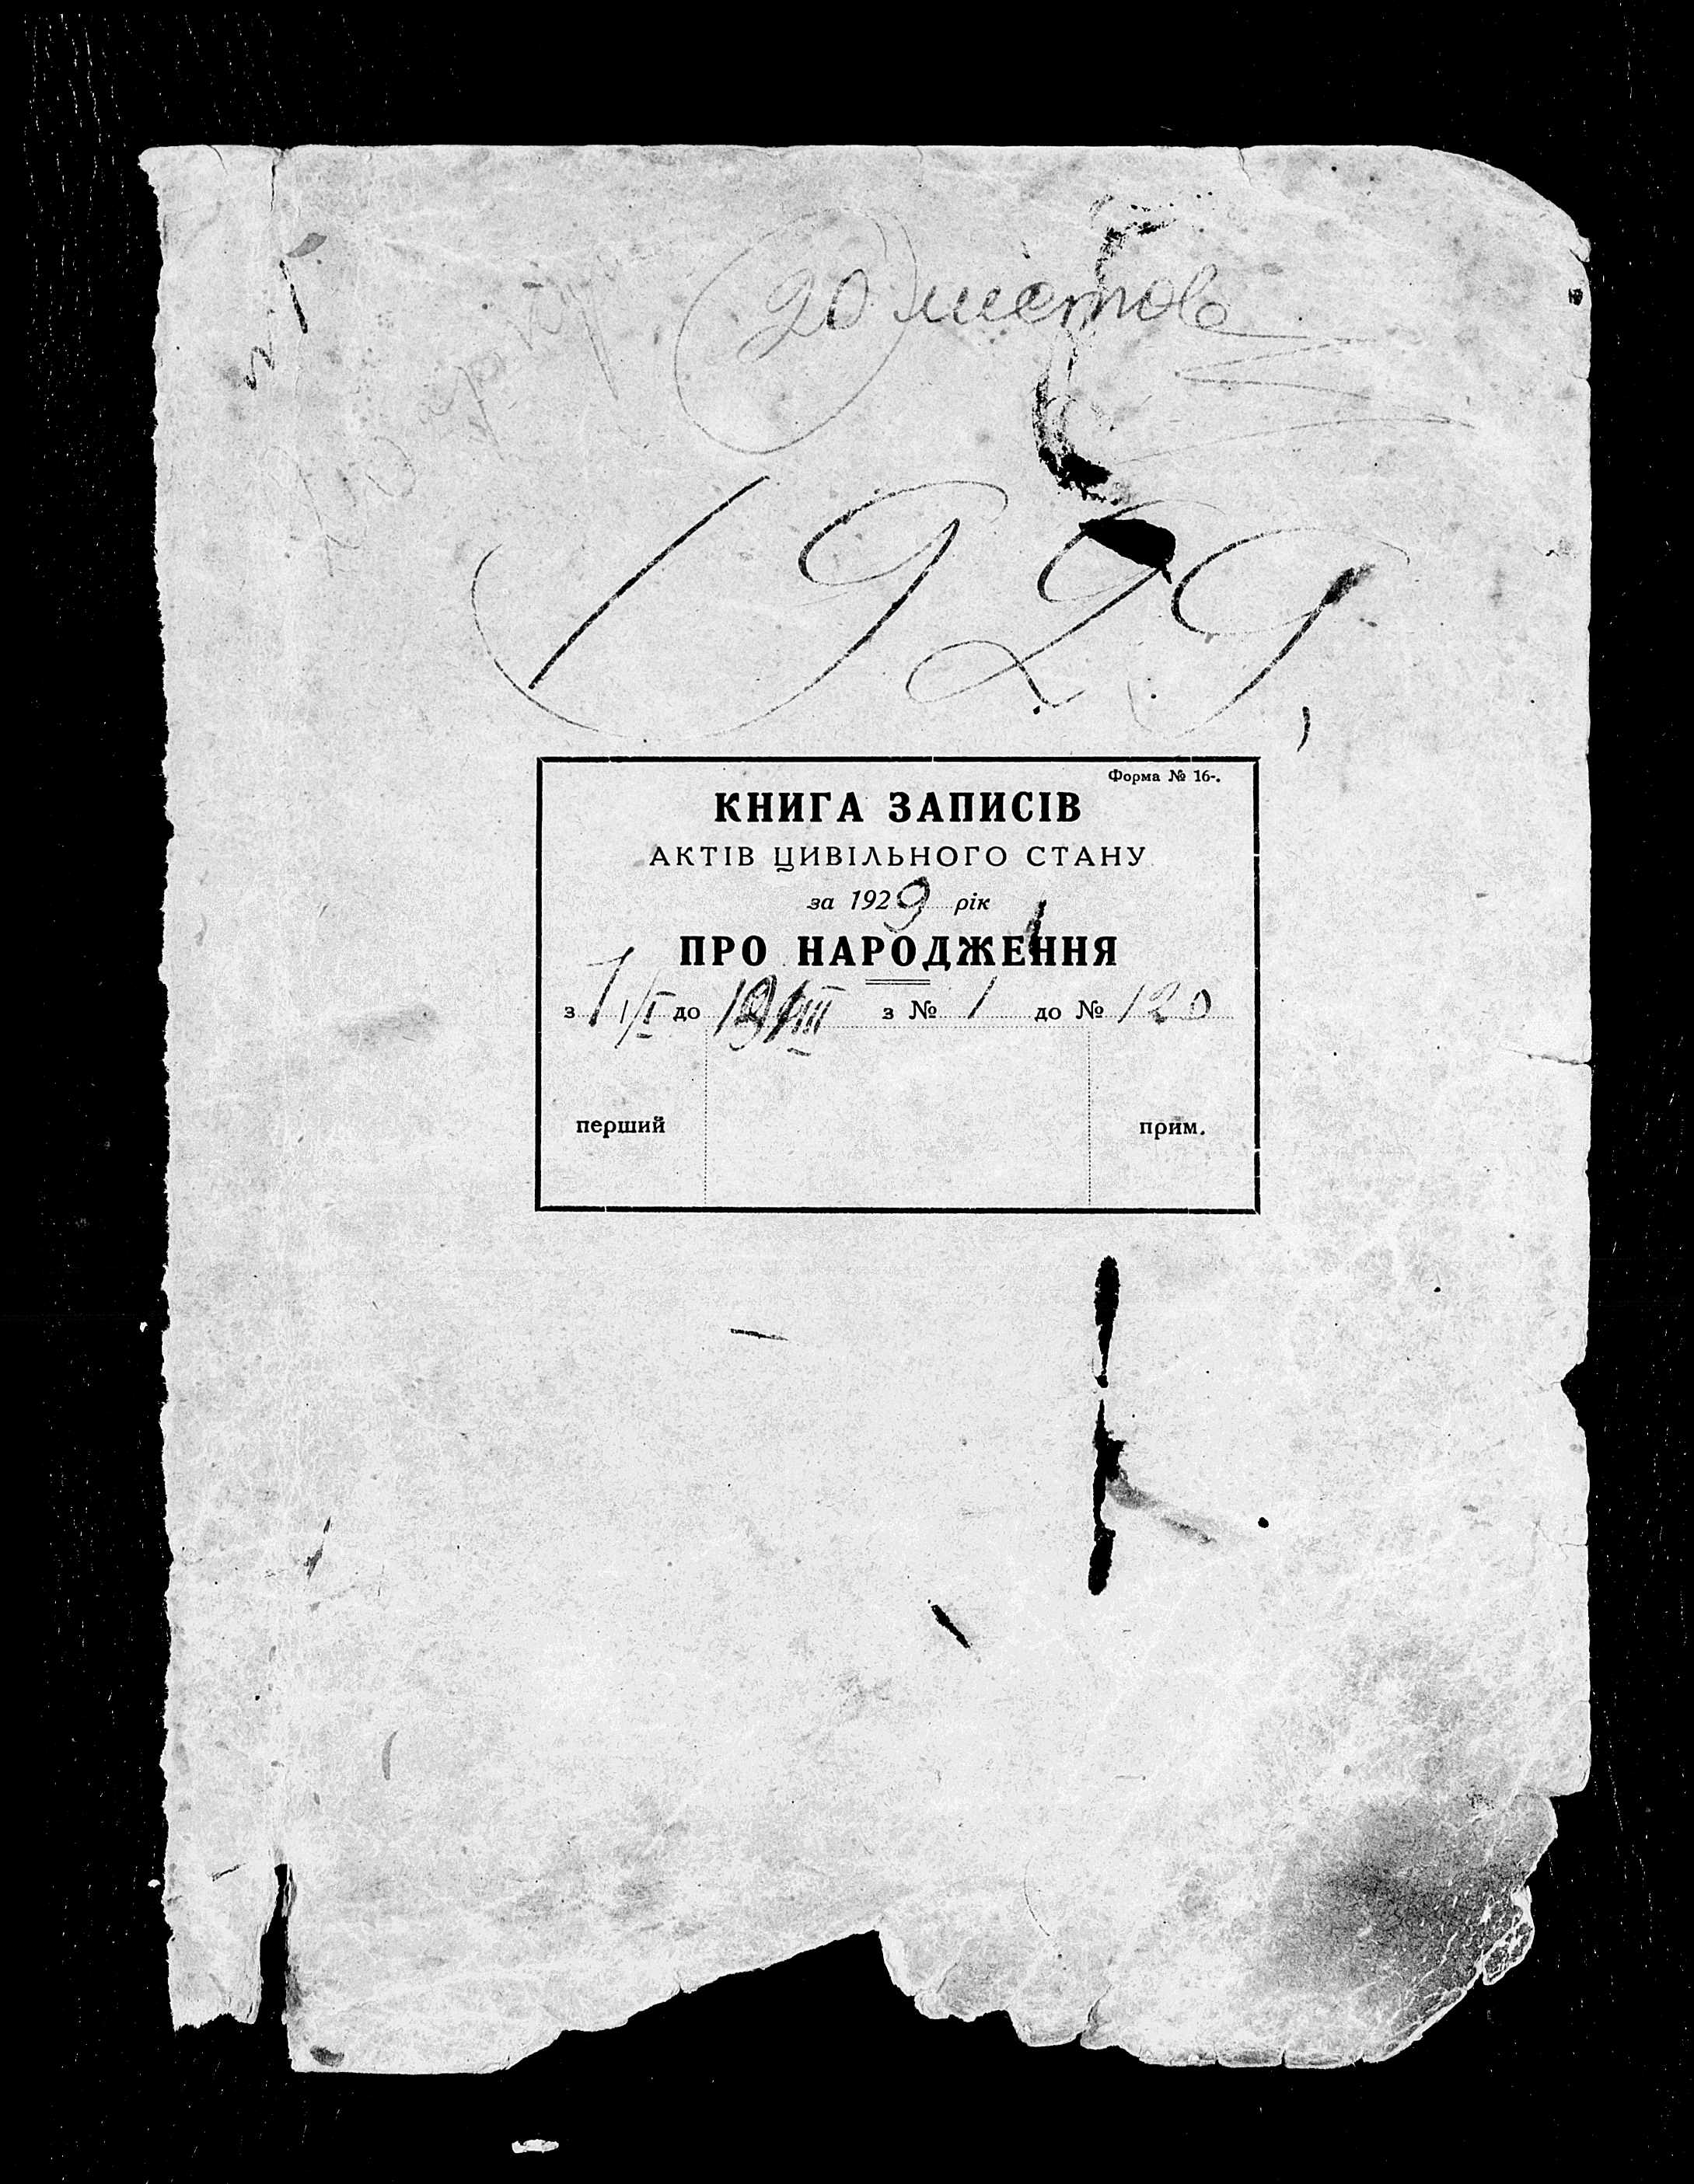 20 листов
1929
Форма № 16-.
КНИГА ЗАПИСІВ
АКТІВ ЦИВІЛЬНОГО СТАНУ
за 1929 рік
ПРО НАРОДЖЕННЯ
з 1/I до III з № 1 до № 120
перший прим.